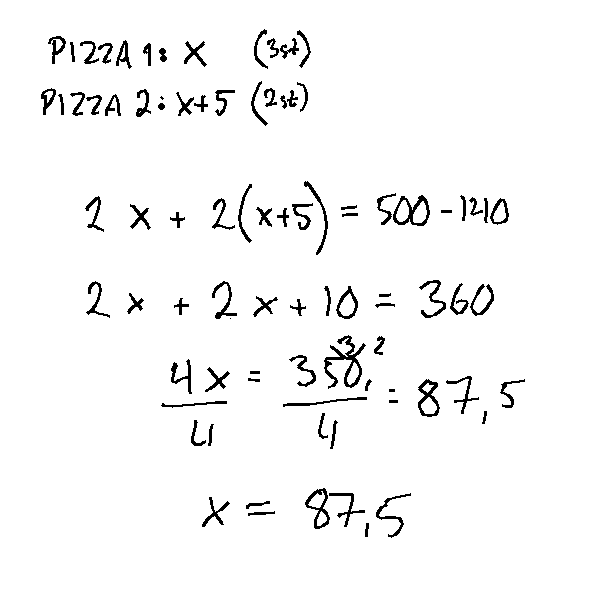 PIZZA 1: x (3st)
PIZZA 2: x+5 (2st)
2 x + 2(x+5) = 500 - 140
2 x + 2 x + 10 = 360
4x/4 = 350,/4 = 87,5
3 2
x = 87,5